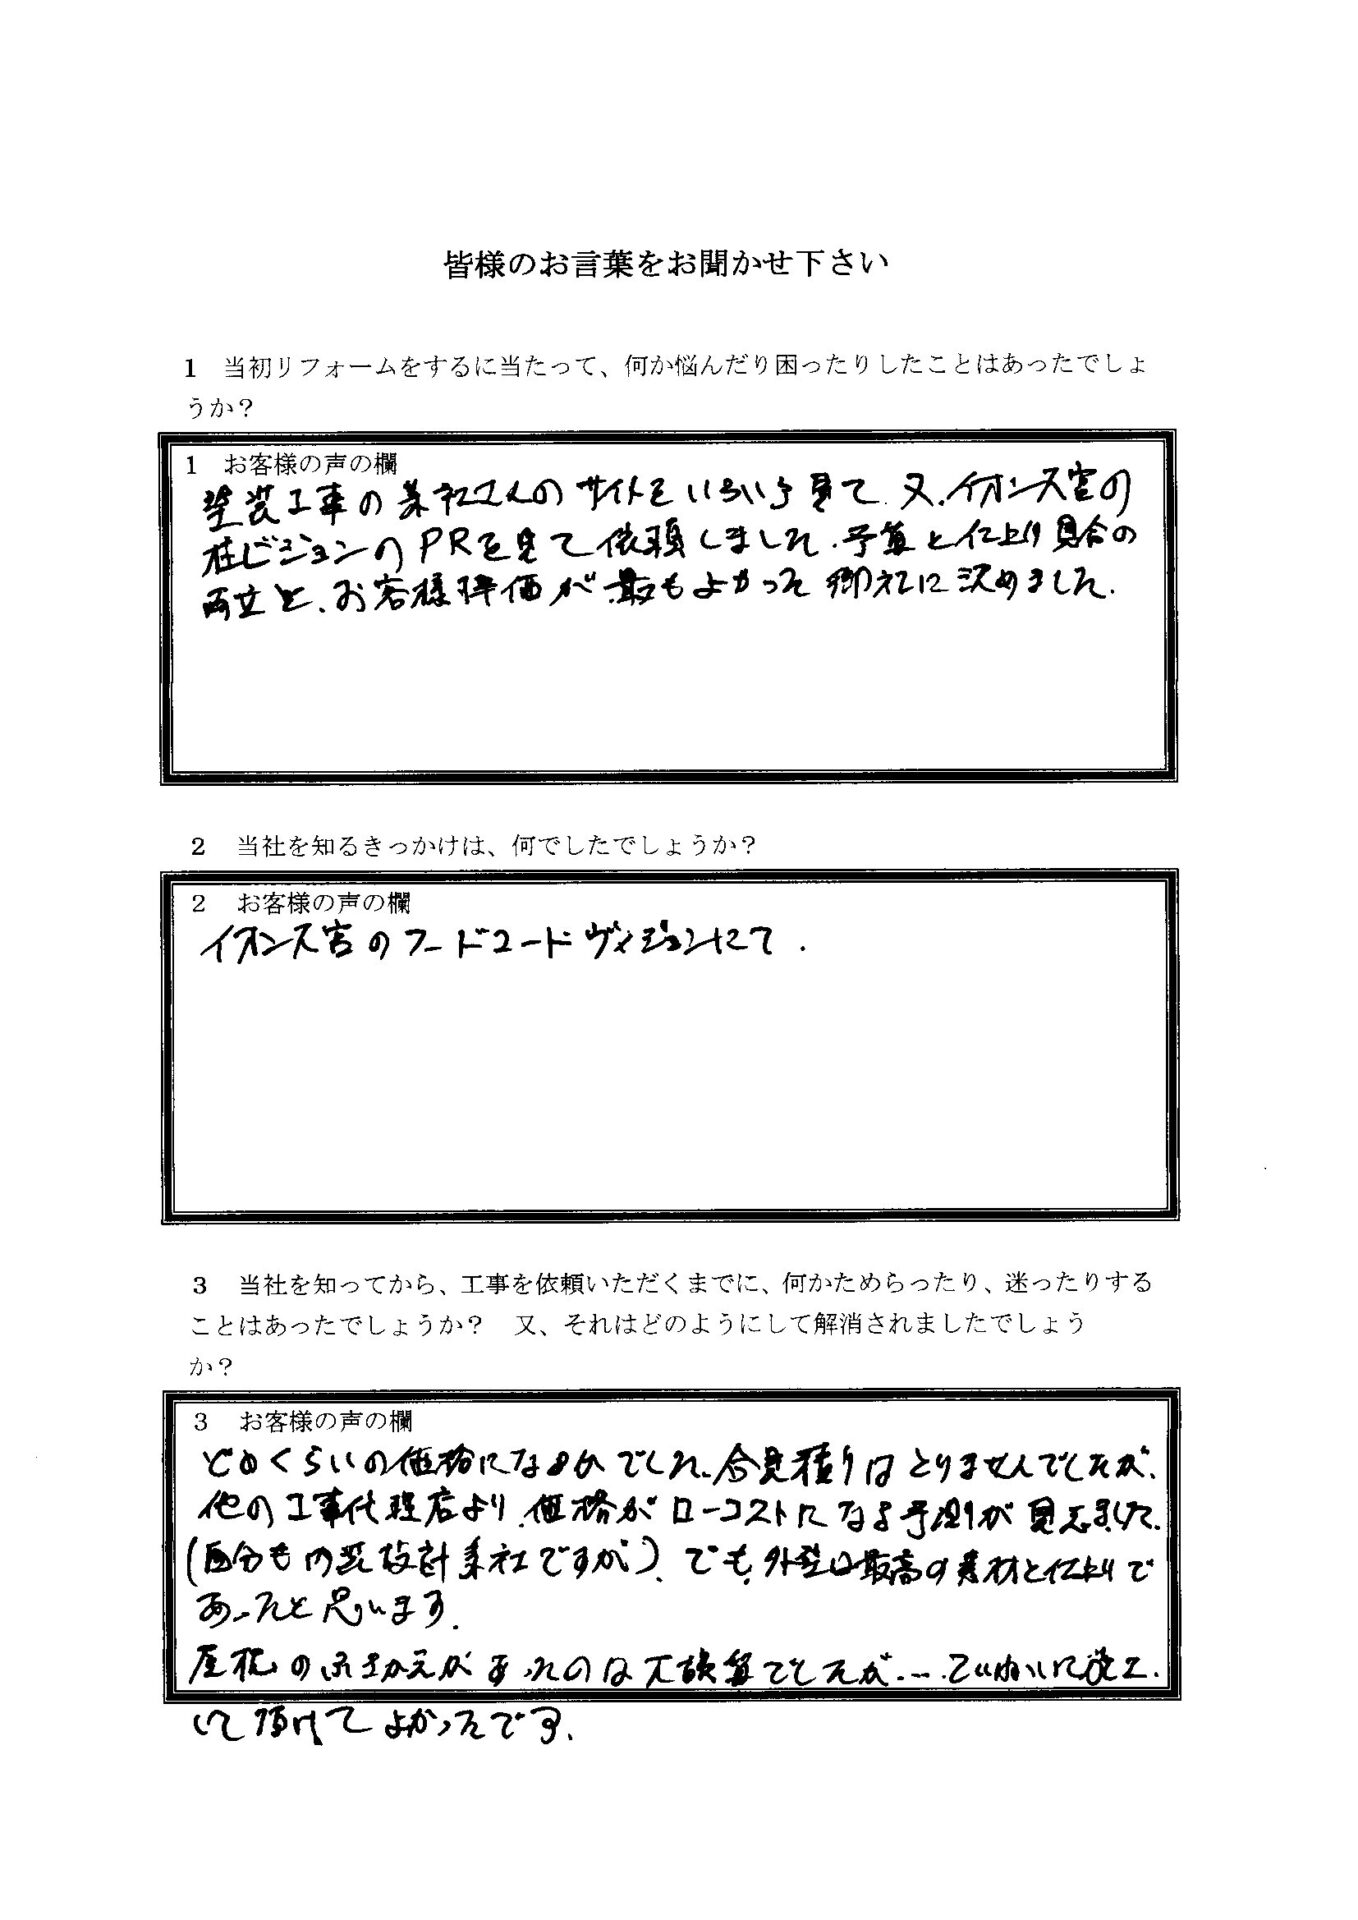 皆様のお言葉をお聞かせ下さい
1 当初リフォームをするに当たって、何か悩んだり困ったりしたことはあったでしょ
うか?
1 お客様の声の欄
塗装工事の業社さんのサイトをいろいろ見て、又、イオン大宮の
柱ビジョンのPRを見て依頼しました。予算と仕上り具合の
両立と、お客様評価が最もよかった御社に決めました。
2 当社を知るきっかけは、何でしたでしょうか?
2 お客様の声の欄
イオン大宮のフードコードヴィジョンにて.
3 当社を知ってから、工事を依頼いただくまでに、何かためらったり、迷ったりする
ことはあったでしょうか? 又、それはどのようにして解消されましたでしょう
か?
3 お客様の声の欄
どのくらいの価格になるかでした。合見積りはとりませんでしたが、
他の工事代理店より、価格がローコストになる予測が見えました。
(自分も内装設計業社ですが)、でも、外壁は最高の素材と仕上りで
あったと思います。
屋根のふきかえがあったのは大誤算でしたが…、ていねいに施工
して頂けてよかったです。